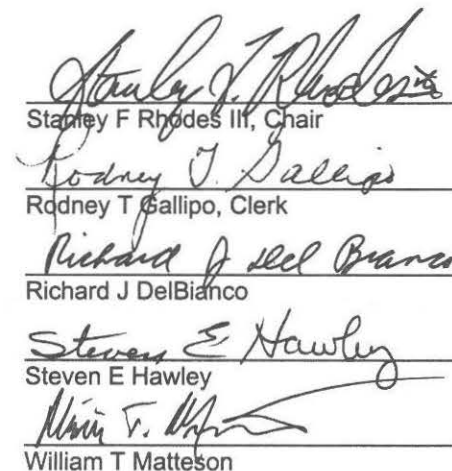 Stanley F. Rhodes III
Stanley F Rhodes III, Chair
Rodney T. Gallipo
Rodney T Gallipo, Clerk
Richard J Del Bianco
Richard J DelBianco
Steven E Hawley
Steven E Hawley
William T Matteson